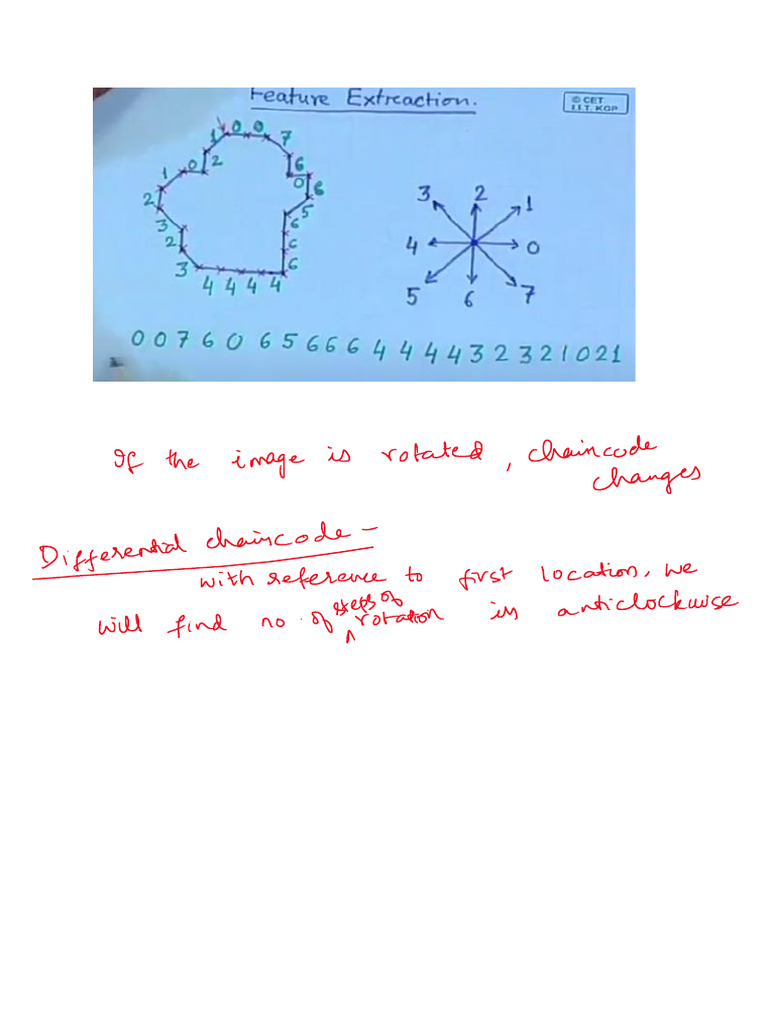 Feature Extraction.
© CET
I.I.T. KGP
1 0 0 7
1 0 2 6
0 6
2 5
3 6
2 6
3 6
4 4 4 4
3 2 1
4 0
5 6 7
0 0 7 6 0 6 5 6 6 6 4 4 4 4 3 2 3 2 1 0 2 1
If the image is rotated, chaincode
changes
Differential chaincode -
with reference to first location, we
will find no. of steps of rotation in anticlockwise